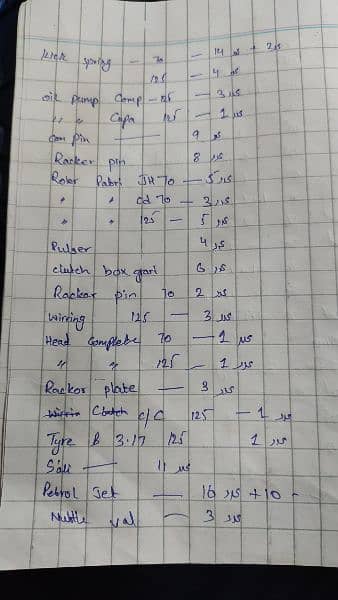 kick spring - 70 - 14 عدد + 2عدد
125 - 4 عدد
oil pump Comp - 125 - 3 عدد
" " Capa 125 - 1 عدد
Cam pin — 9 عدد
Racker pin 8 عدد
Roler Pabri JH 70 - 5 عدد
" " cd 70 - 3 عدد
" " 125 - 5 عدد
Pulser 4 عدد
clutch box gari 6 عدد
Rackar pin 70 2 عدد
wirring 125 - 3 عدد
Head Complete 70 - 1 عدد
" " 125 - 1 عدد
Rackor plate - 3 عدد
C/C 125 - 1 عدد
Tyre B 3.17 125 1 عدد
Sali — 11 عدد
Petrol Jet — 16 عدد +10 -
Nuttle val - 3 عدد